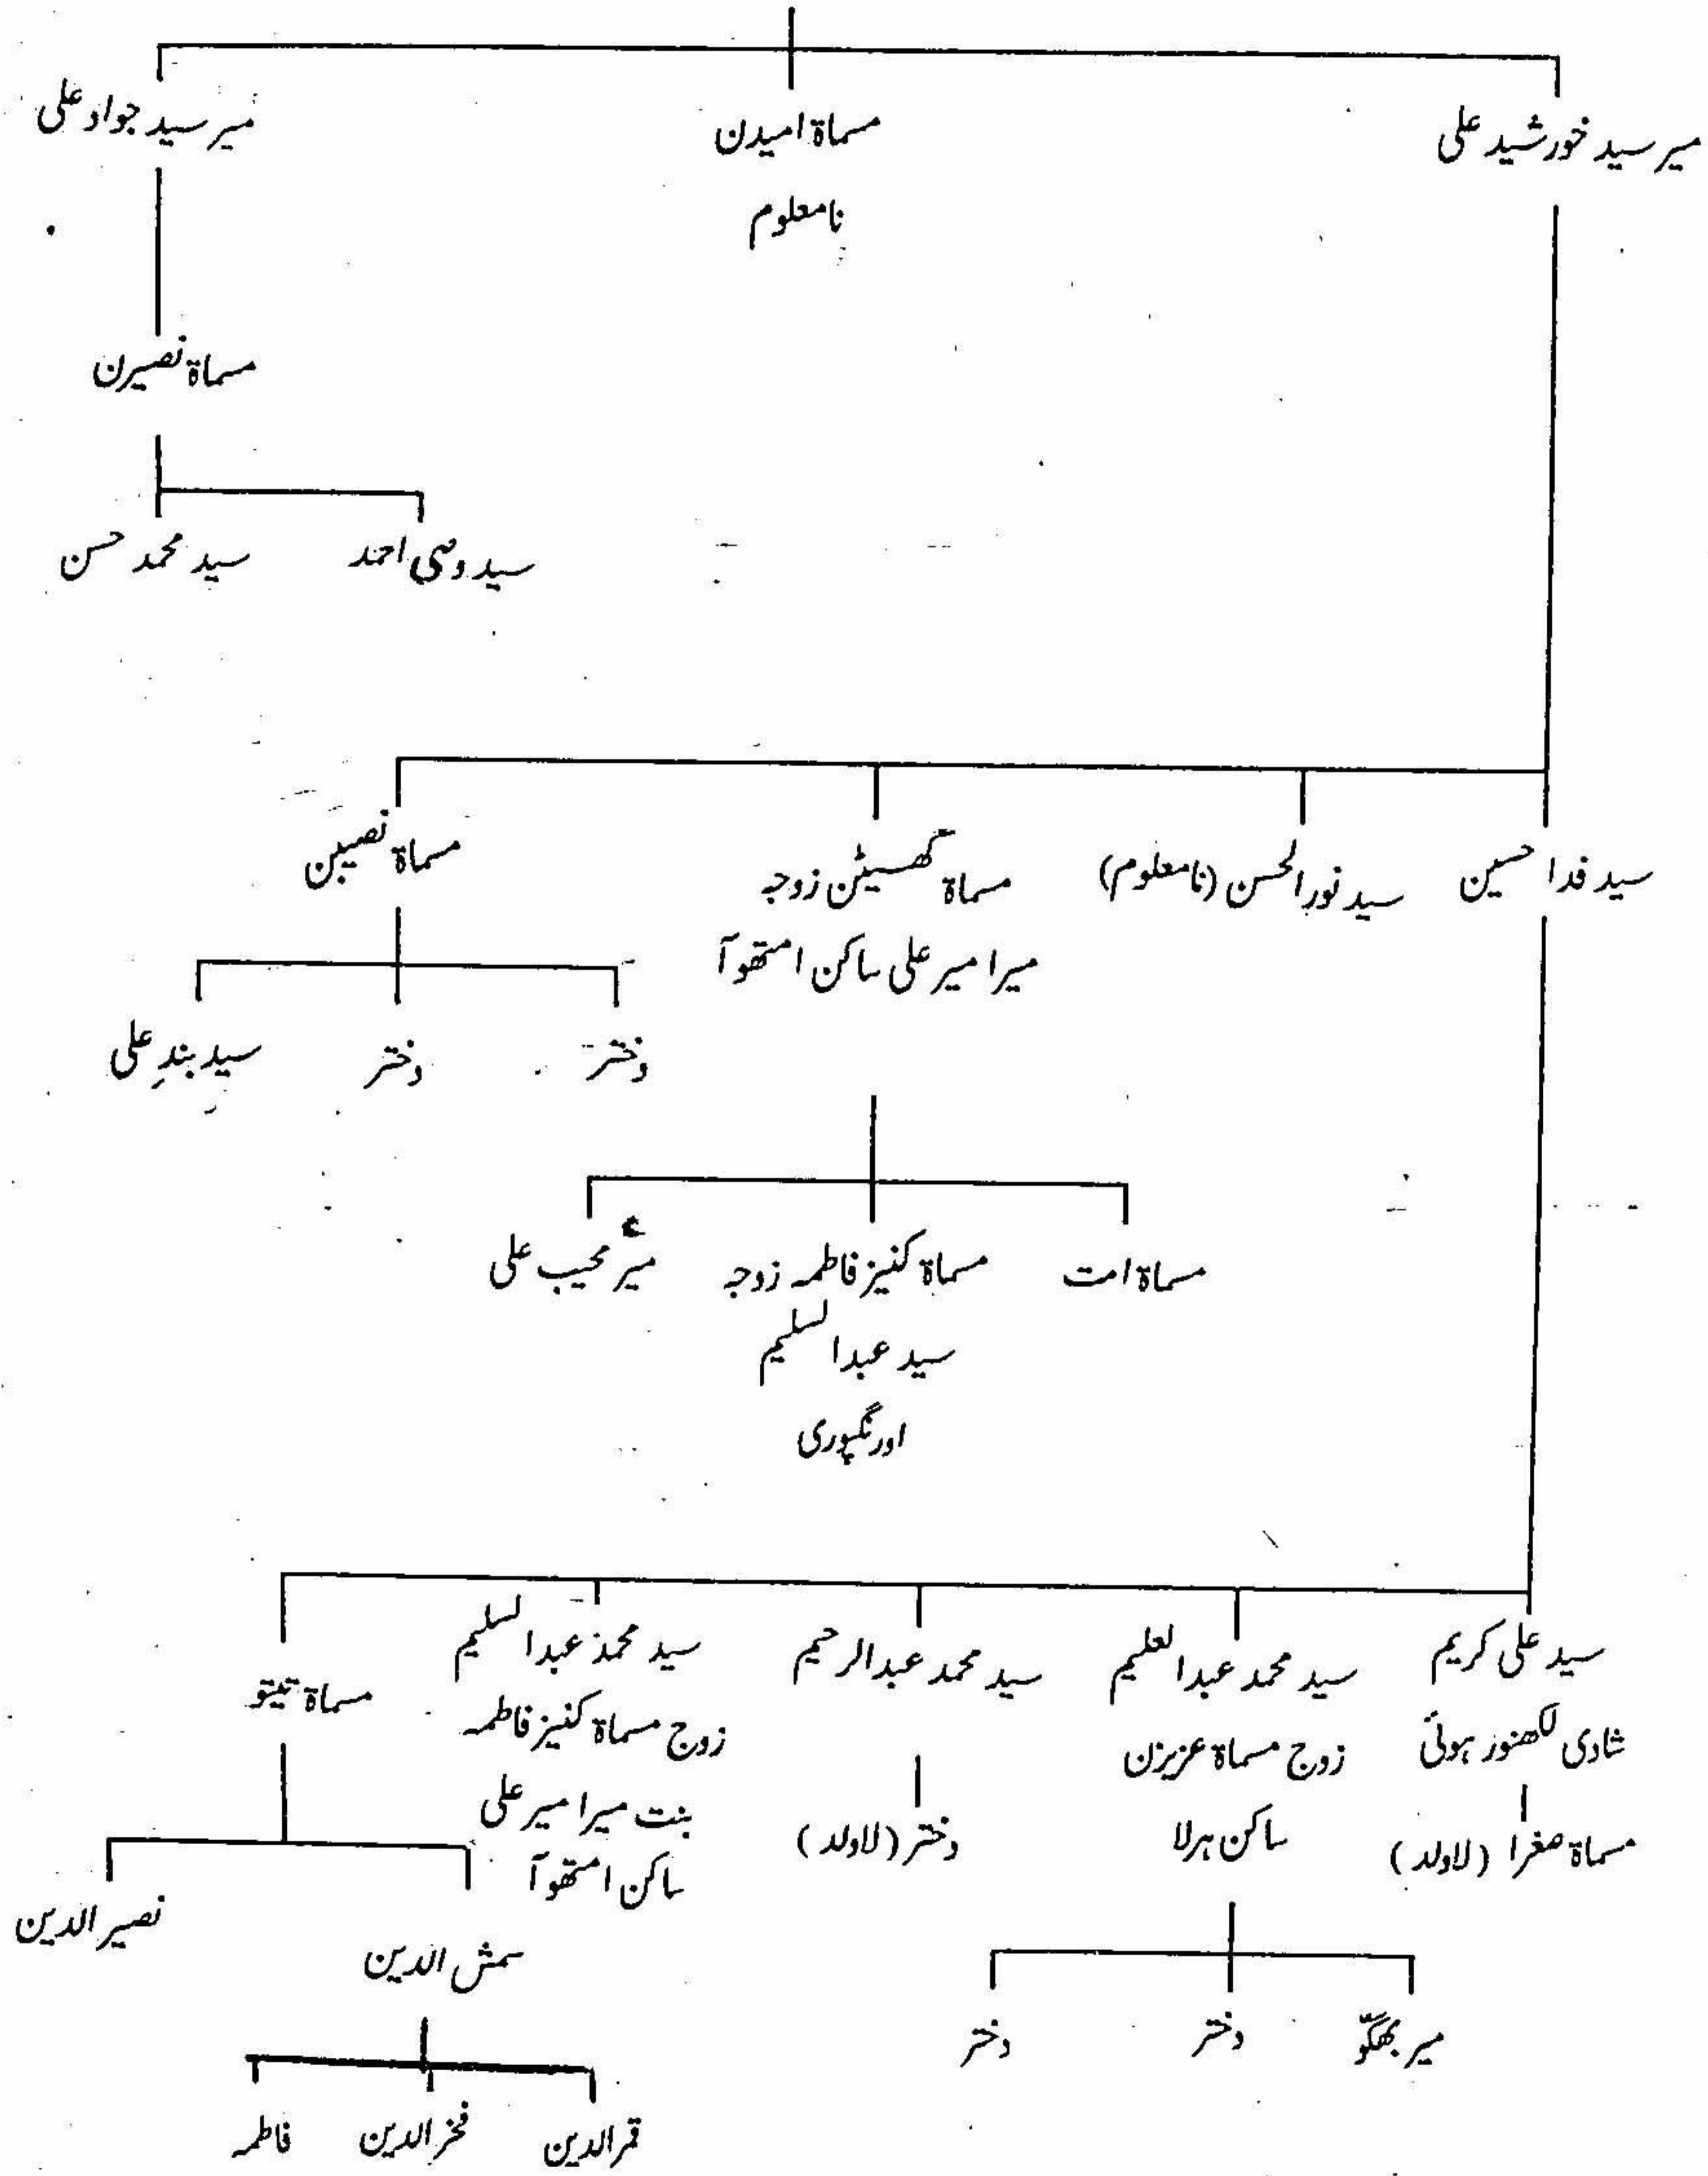 میر سید خورشید علی
مسماۃ امیدن
نامعلوم
میر سید جواد علی
مسماۃ نصیرن
سید وصی احمد
سید محمد حسن
سید فدا حسین
سید نورالحسن (نامعلوم)
مسماۃ گھسیٹن زوجہ
میر امیر علی ساکن امتھوآ
مسماۃ نصیبن
دختر
دختر
سید بندِ علی
مسماۃ امت
مسماۃ کنیز فاطمہ زوجہ
سید عبدالسلیم
اورنگپوری
میر محیب علی
سید علی کریم
شادی لکھنور ہوئی
مسماۃ صغرا (لاولد)
سید محمد عبدالعلیم
زوج مسماۃ عزیزن
ساکن ہرلا
سید محمد عبدالرحیم
دختر (لاولد)
سید محمد عبدالسلیم
زوج مسماۃ کنیز فاطمہ
بنت میر امیر علی
ساکن امتھوآ
مسماۃ
میر بھگّو
دختر
دختر
شمش الدین
نصیر الدین
قمر الدین
فخر الدین
فاطمہ